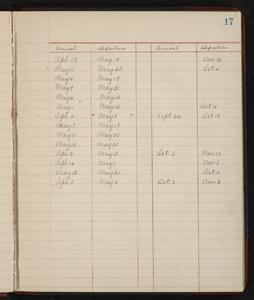 17
Arrival Departure Arrival Departure
Apr. 19 May 15 Nov. 12
May 11 May 25 Oct. 6
May 4 May 19
May 9 May 21
May 6 May 14
May 1 May 16 Oct. 12
Apr. 2 May 8 Sept. 26 Oct. 15
May 7 May 19
May 6 May 20
May 10 May 21
Apr. 2 May 12 Oct. 5 Nov. 12
Apr. 16 May 5 Nov. 3
May 12 May 21 Oct. 6
Apr. 5 May 6 Oct. 3 Nov. 3